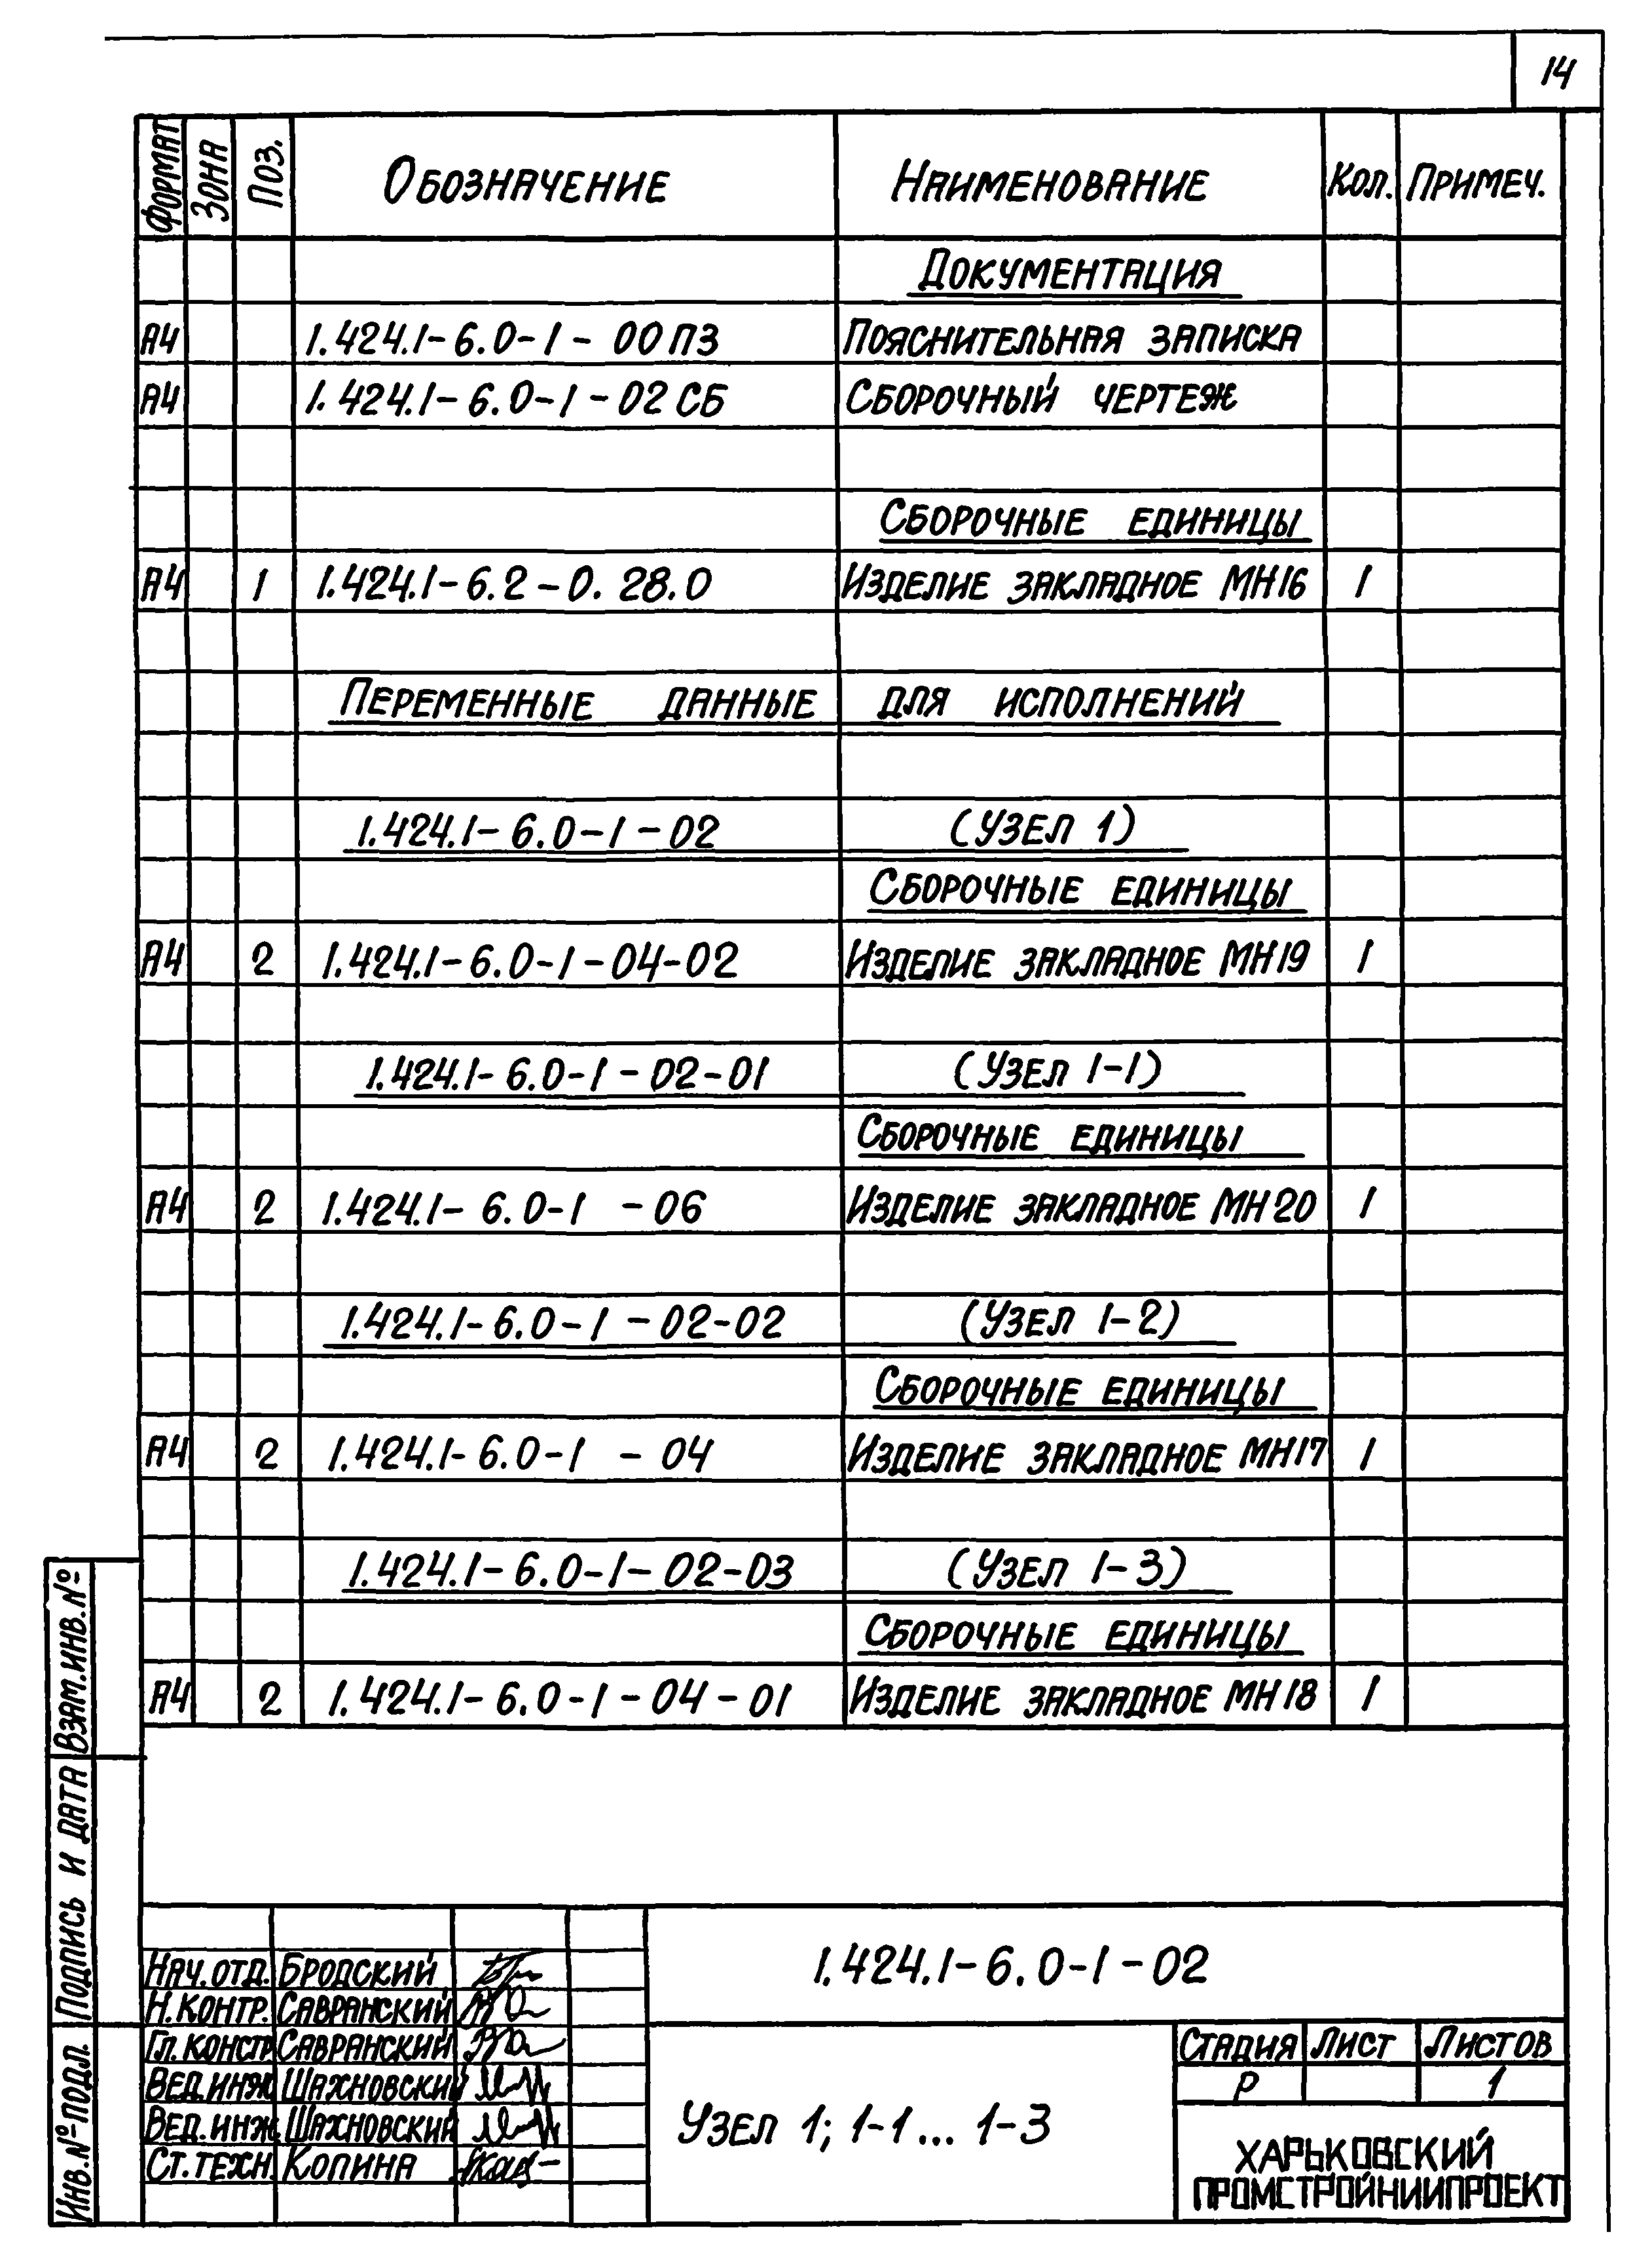 14
Формат Зона Поз. Обозначение Наименование Кол. Примеч.
Документация
А4 1.424.1-6.0-1-00ПЗ Пояснительная записка
А4 1.424.1-6.0-1-02СБ Сборочный чертеж
Сборочные единицы
А4 1 1.424.1-6.2-0.28.0 Изделие закладное МН16 1
Переменные данные для исполнений
1.424.1-6.0-1-02 (Узел 1)
Сборочные единицы
А4 2 1.424.1-6.0-1-04-02 Изделие закладное МН19 1
1.424.1-6.0-1-02-01 (Узел 1-1)
Сборочные единицы
А4 2 1.424.1-6.0-1-06 Изделие закладное МН20 1
1.424.1-6.0-1-02-02 (Узел 1-2)
Сборочные единицы
А4 2 1.424.1-6.0-1-04 Изделие закладное МН17 1
1.424.1-6.0-1-02-03 (Узел 1-3)
Сборочные единицы
А4 2 1.424.1-6.0-1-04-01 Изделие закладное МН18 1
Взам.инв.№
Подпись и дата
Инв.№ подл.
Нач.отд. Бродский
Н.контр. Савранский
Гл.констр. Савранский
Вед.инж. Шахновский
Вед.инж. Шахновский
Ст.техн. Копина
1.424.1-6.0-1-02
Узел 1; 1-1... 1-3
Стадия Лист Листов
Р 1
ХАРЬКОВСКИЙ
ПРОМСТРОЙНИИПРОЕКТ